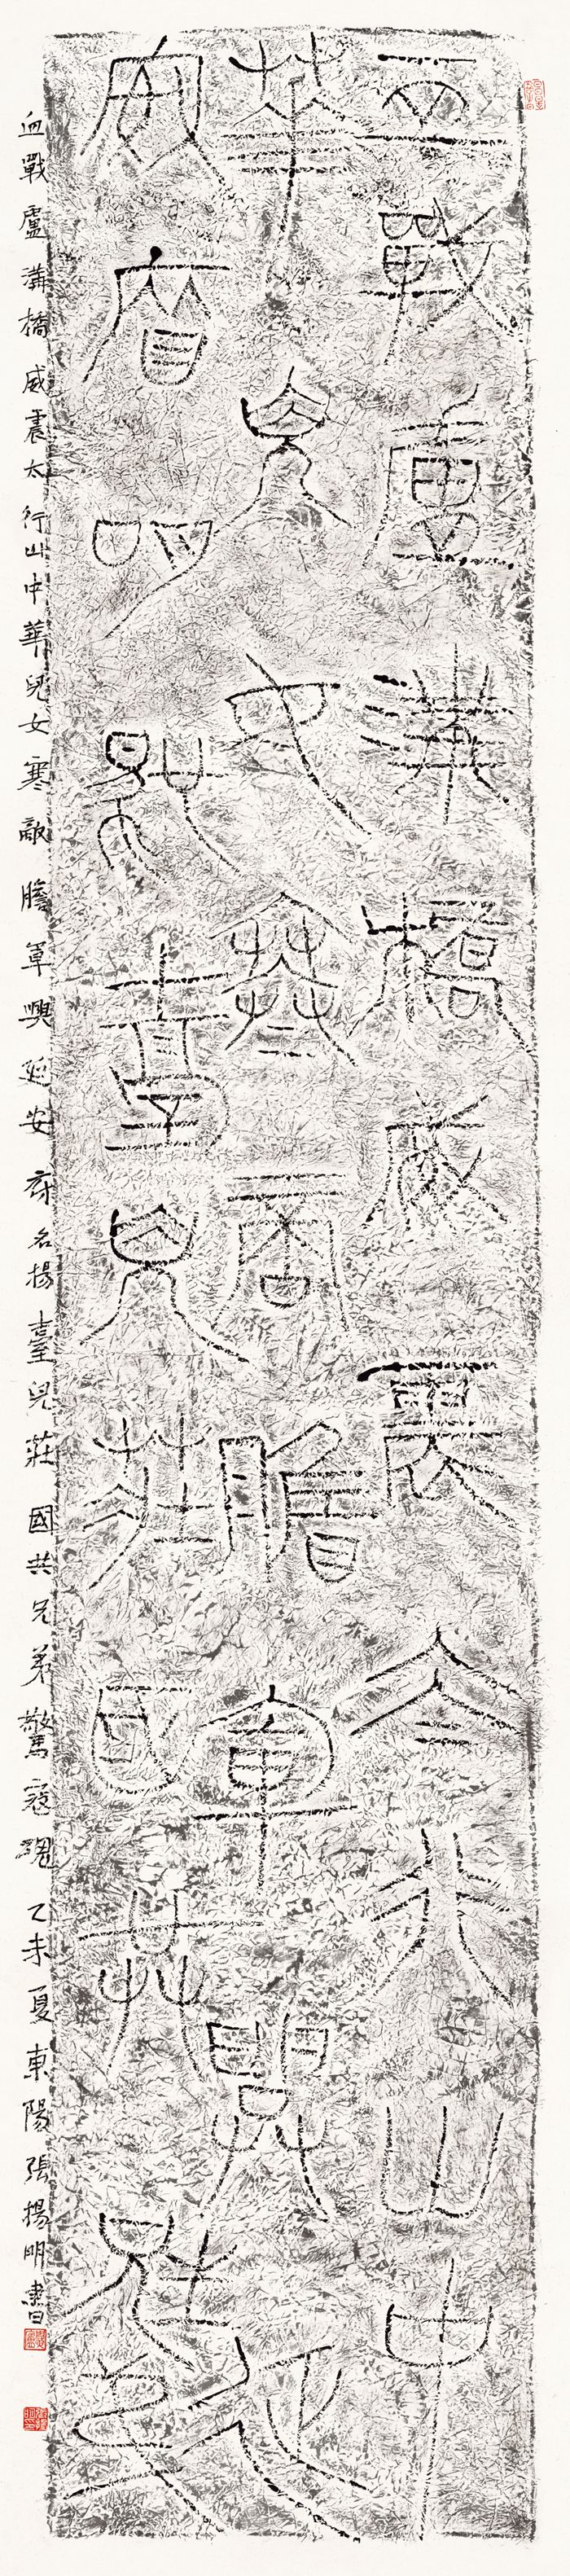 血戰盧溝橋威震太行山中
華兒女寒敵膽軍興延
安府名揚臺兒莊國共
血戰盧溝橋威震太行山中華兒女寒敵膽軍興延安府名揚臺兒莊國共兄弟驚寇魂乙未夏東陽張揚明書